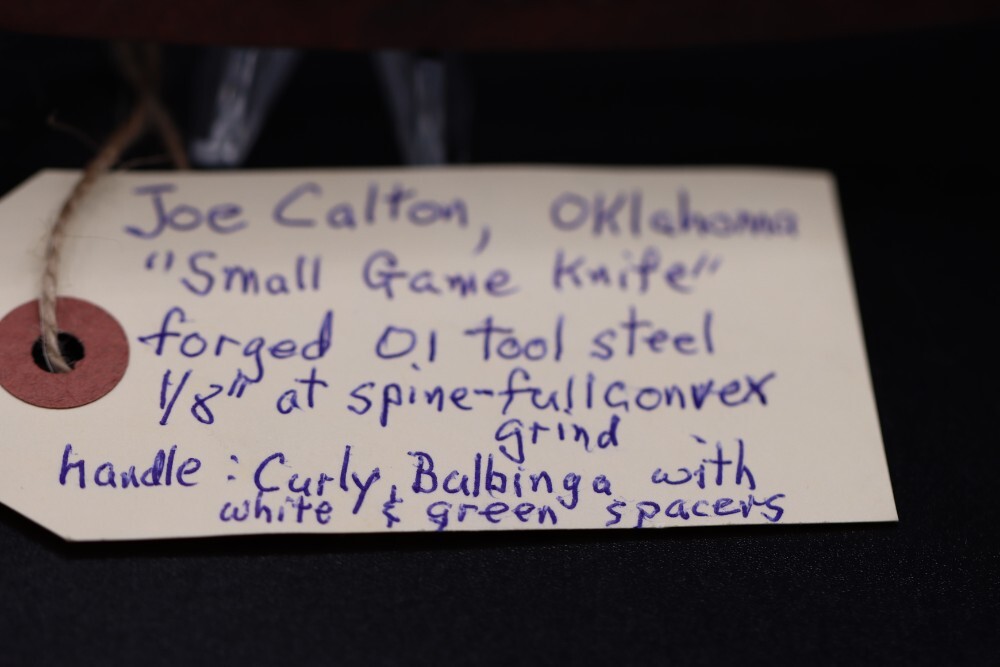 Joe Calton, Oklahoma
"Small Game Knife"
forged O1 tool steel
1/8" at spine-full convex
grind
handle: Curly Balbinga with
white & green spacers